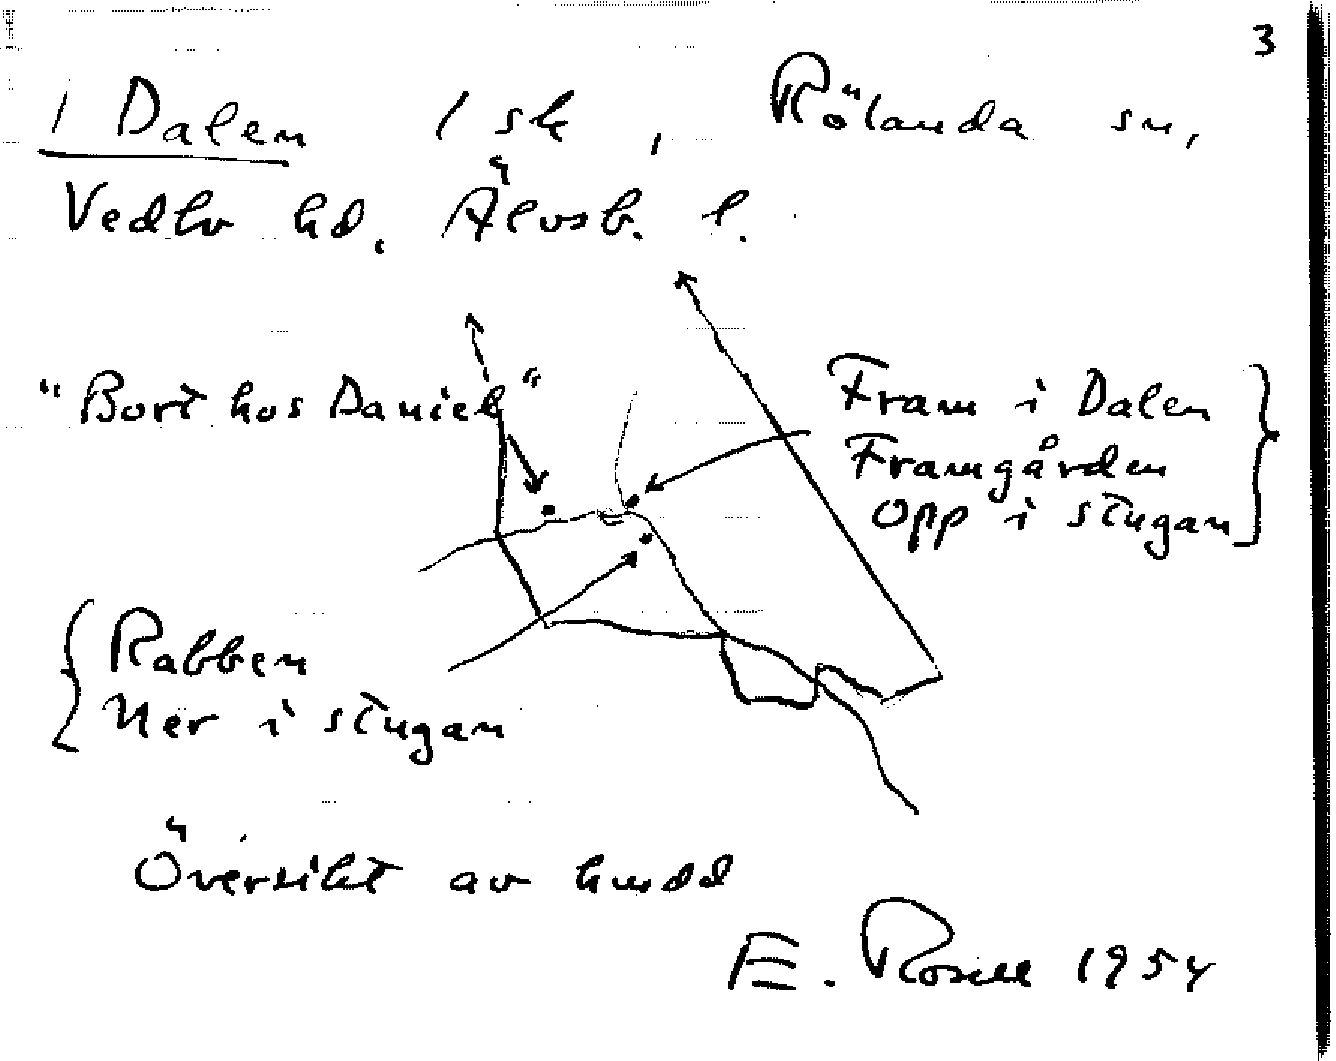 3
1 Dalen 1 sk, Rölanda sn,
Vedbo hd. Älvsb. l.
"Bort hos Daniel"
Fram i Dalen
Framgården
Opp i stugan
Rabben
Ner i stugan
Översikt av
E. Rosell 1954